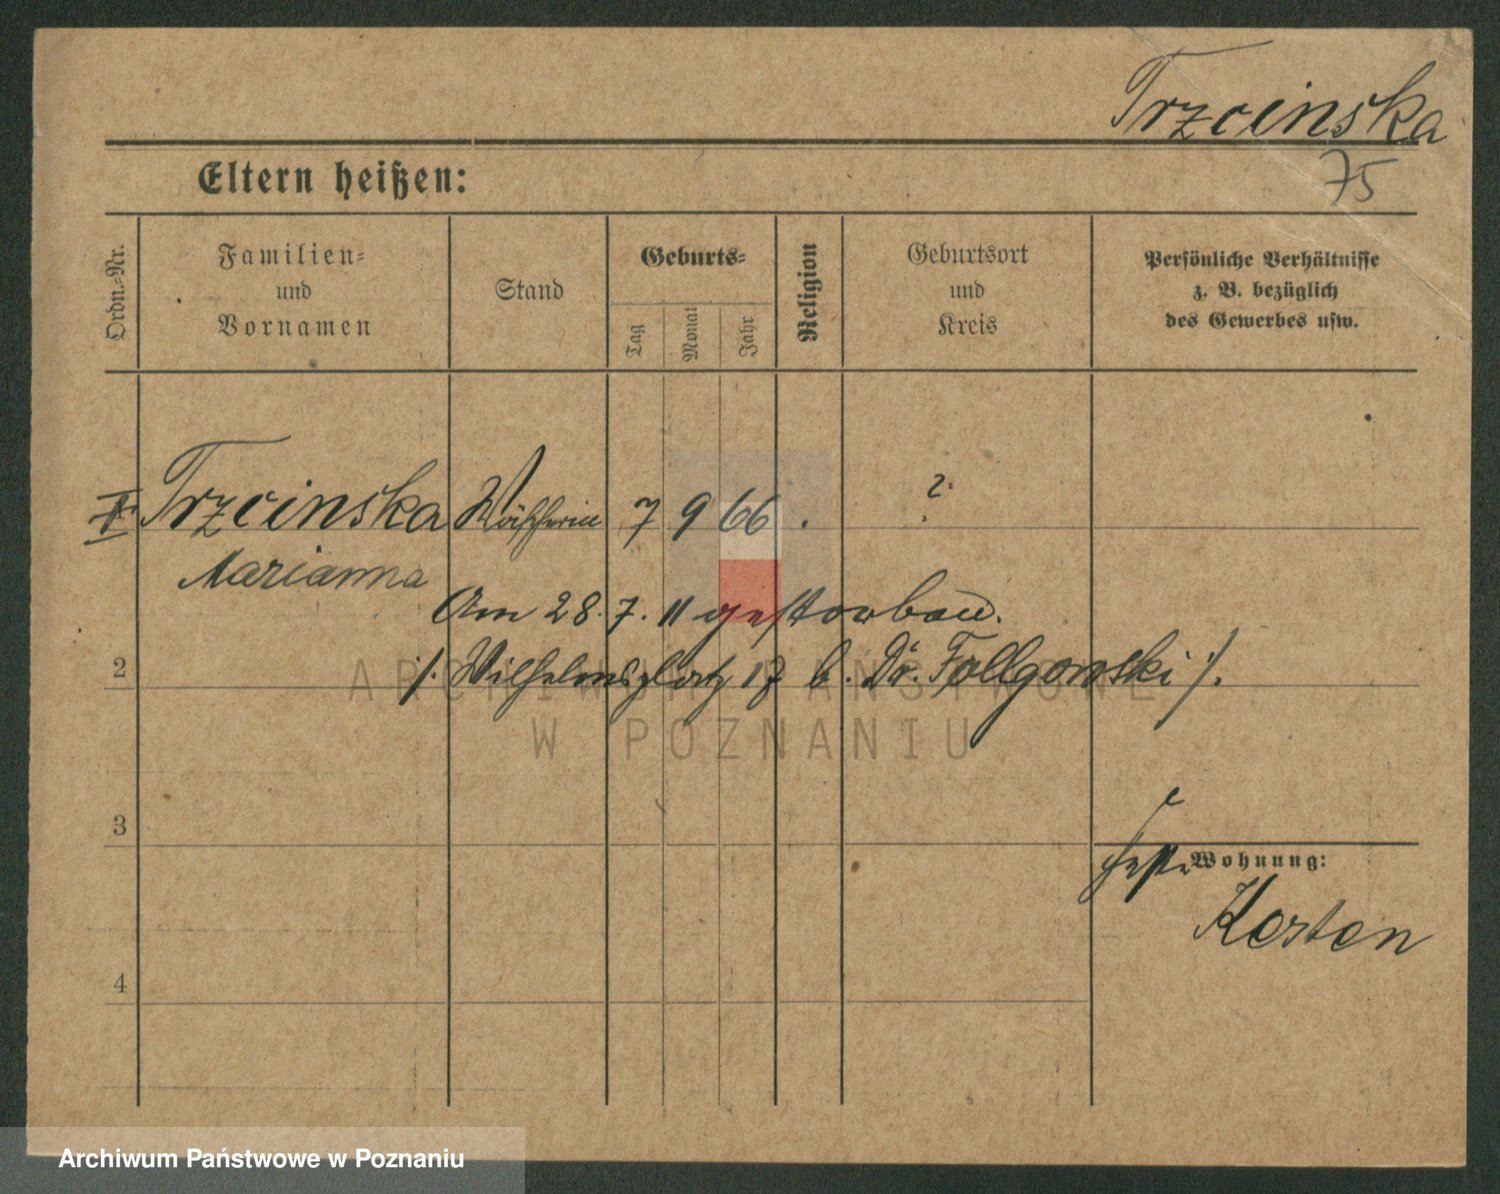 Trzcinska
75
Eltern heißen:
Ordn.-Nr.
Familien-
und
Vornamen
Stand
Geburts-
Tag
Monat
Jahr
Religion
Geburtsort
und
Kreis
Persönliche Verhältnisse
z. B. bezüglich
des Gewerbes usw.
I Trzcinska Wäscherin 7 9 66 . ?
Marianna
Am 28. 7. 11 gestorben.
2 /. Wilhelmsplatz 17 b. Dr. Follgowski ./.
3
Wohnung:
Karten
4
ARCHIWUM PAŃSTWOWE
W POZNANIU
Archiwum Państwowe w Poznaniu